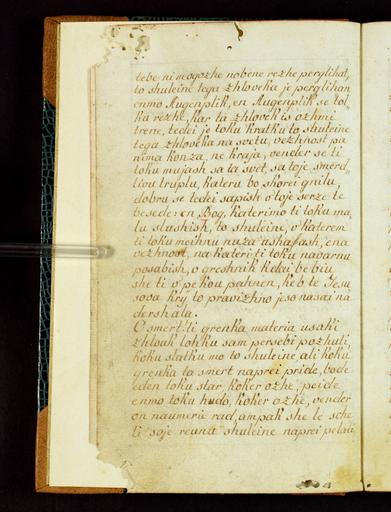 tebe ni mogozhe nobene rezhe perglihat,
to shuleine tega zhloveka je perglihan
enmo Augenplik, en Augenplik se tol-
ku rezhe, kar ta zhlovik is ozhmi
trene, tedei je toku kratku to shuleine
tega zhloveka na svetu, vezhnost pa
nima konza, ne kraja, vender se ti
toku mujash sa ta svet, sa toje smerd
livu truplu, kateru bo skorei gnilu,
dobru se tedei sapish v'toje serze te
besede: en Bog, katerimo ti toku ma-
lu slushish, to shuleine, v'katerem
ti toku meihnu nuza ushafash, ena
vezhnost, na kateri ti toku navarnu
posabish, o greshnik kekei be biu,
she ti v'pekou pahnen, keb te Jesu
sova kry to pravizhno jeso nasai na
dershala.
O smert! ti grenka materia usaki
zhlouk lohku sam persebi pozhuti,
koku slatku mo to shuleine, ali koku
grenka ta smert naprei pride, bode
eden toku star, koker ozhe, peide
enmo toku hudo, koker ozhe, vender
on naumerie rad, ampak she le sche
li soje reunu shuleine naprei pelati